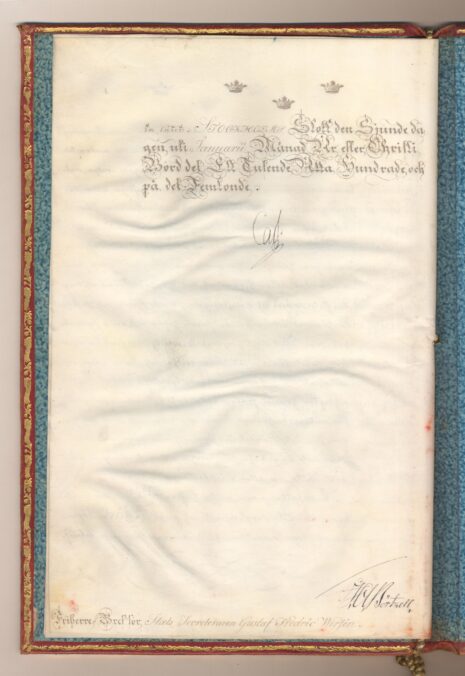 STOCKHOLMS Slott den Sjunde da
gen uti Januarii Månad År efter Christi
Börd det Ett Tusende Åtta Hundrade, och
på det Femtonde.
Carl
Friherre-Bref för Stats Secreteraren Gustaf Fredric Wirsén.